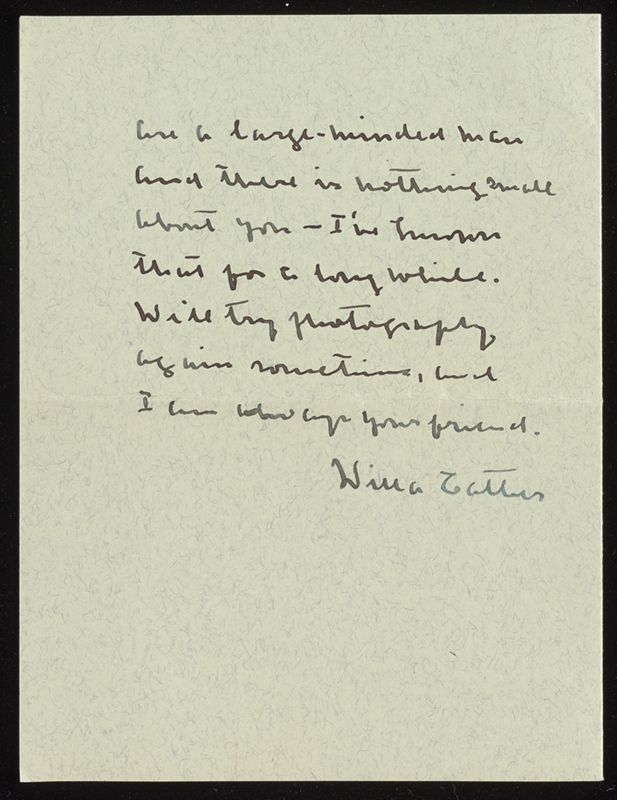 are a large-minded man
and there is nothing small
about you – I've known
that for a long while.
Will try photography
again sometime, and
I am always your friend.
Willa Cather